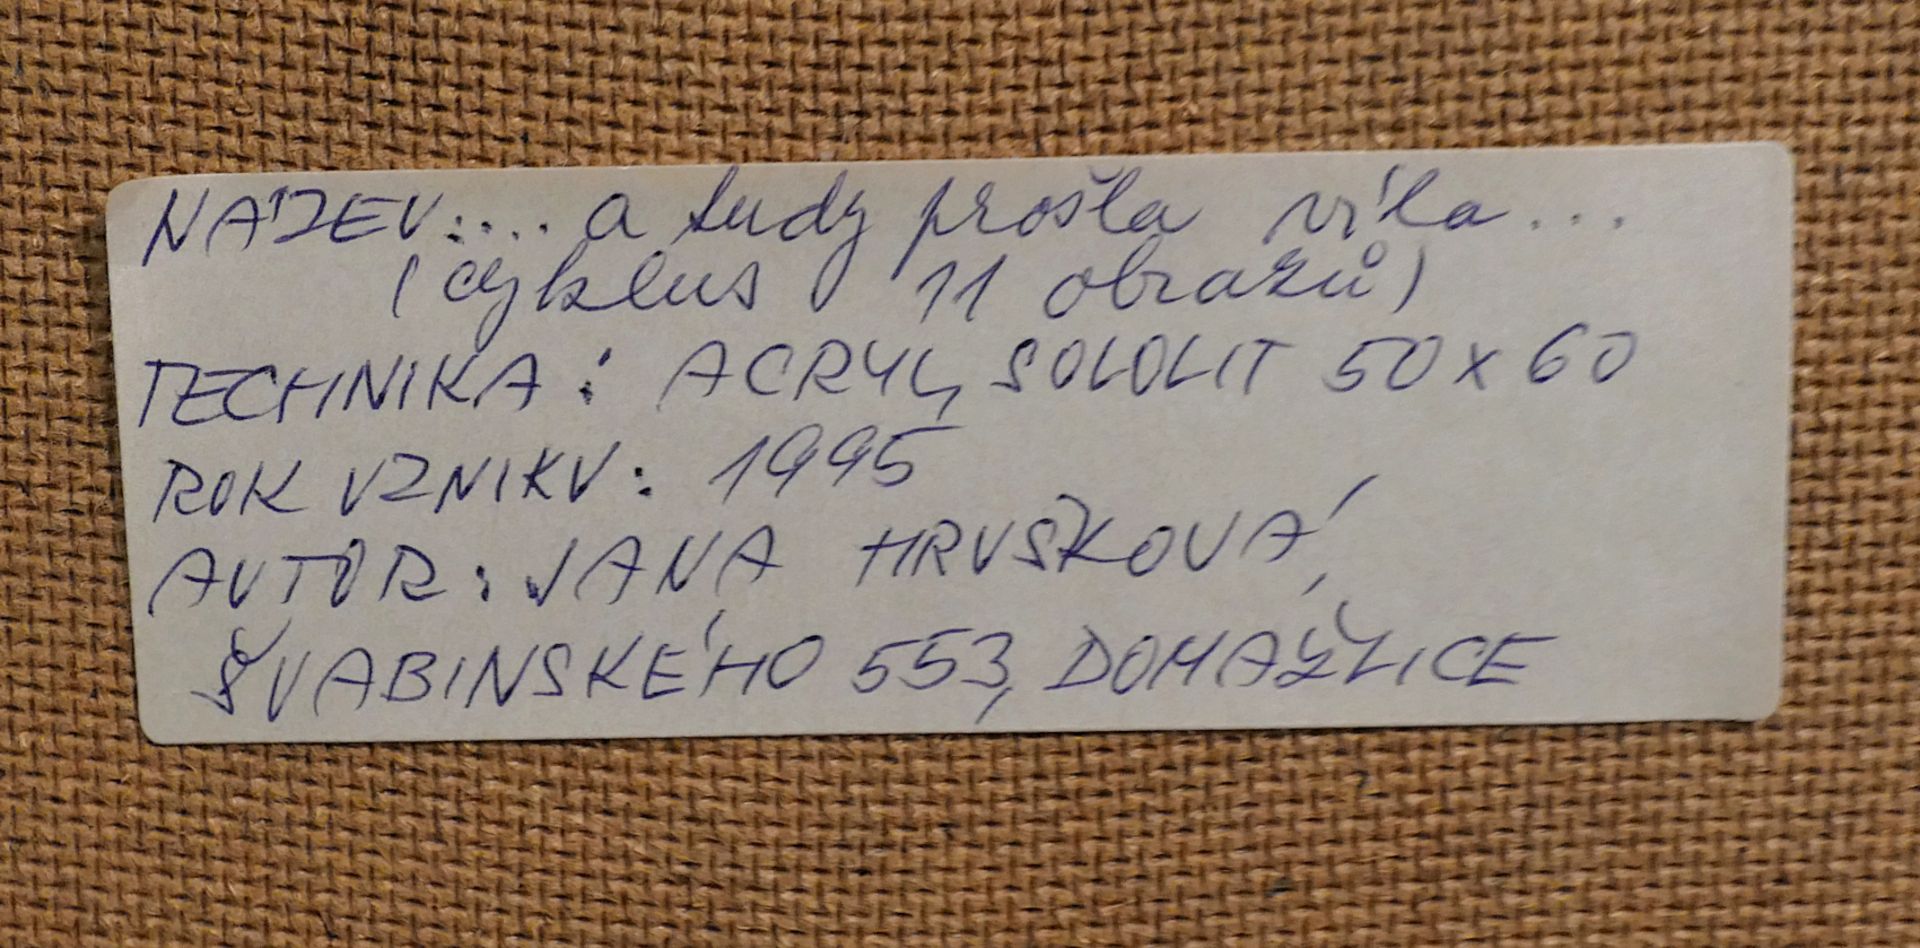 NÁZEV:... a tudy prošla víla...
(cyklus 11 obrazů)
TECHNIKA: ACRYL, SOLOLIT 50 x 60
ROK VZNIKU: 1995
AUTOR: JANA HRUŠKOVÁ,
ŠVABINSKÉHO 553, DOMAŽLICE